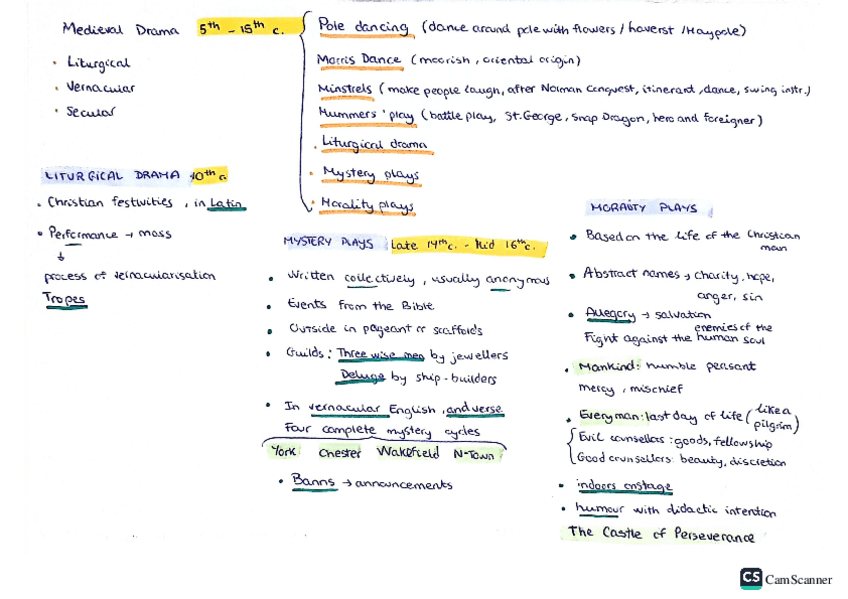 Medieval Drama 5th - 15th c.
• Liturgical
• Vernacular
• Secular
Pole dancing (dance around pole with flowers / haverst / Maypole)
Morris Dance (moorish, oriental origin)
Minstrels (make people laugh, after Norman Conquest, itinerant, dance, swing instr.)
Mummers' play (battle play, St. George, Snap Dragon, hero and foreigner)
• Liturgical drama
• Mystery plays
• Morality plays
LITURGICAL DRAMA 10th c.
• Christian festivities, in Latin
• Performance → mass
↓
process of vernacularisation
Tropes
MYSTERY PLAYS Late 14th c. - Mid 16th c.
• Written collectively, usually anonymous
• Events from the Bible
• Outside in pageant or scaffolds
• Guilds: Three wise men by jewellers
Deluge by ship-builders
• In vernacular English, and verse
Four complete mystery cycles
York Chester Wakefield N-Town
• Banns → announcements
MORALITY PLAYS
• Based on the life of the Christian
man
• Abstract names → charity, hope,
anger, sin
• Allegory → salvation
Fight against the enemies of the human soul
• Mankind: humble peasant
mercy, mischief
• Everyman: last day of life (like a
pilgrim)
Evil counsellors: goods, fellowship
Good counsellors: beauty, discretion
• indoors onstage
• humour with didactic intention
The Castle of Perseverance
CS CamScanner